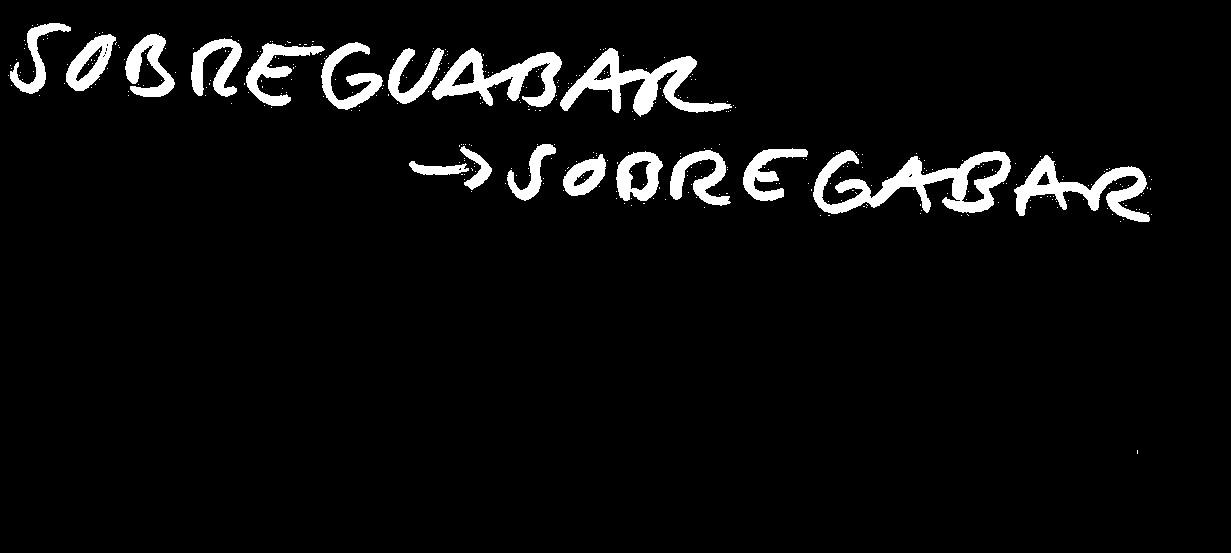 SOBREGUABAR
→ SOBREGABAR